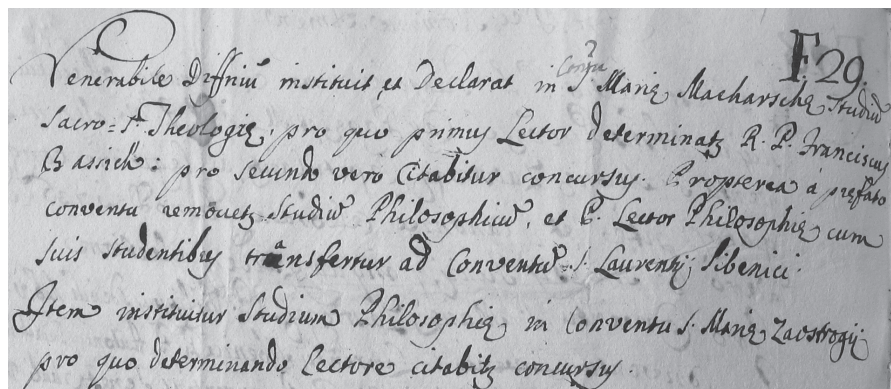 F. 29.
Venerabile Diffniū instituit, et Declarat in Conṽu S. Marię Macharschę Studiū
Sacro = S. Theologię, pro quo primus Lector determinatꝫ R. P. Franciscus
Bassich: pro secundo vero Citabitur concursus. Propterea á pręfato
conventu removetꝫ Studiū Philosophicū, et P. Lector Philosophię cum
suis studentibus transfertur ad Conventū S. Laurentij Sibenici.
Item instituitur Studium Philosophię in Conventu S. Marię Zaostrogij
pro quo determinando Lectore citabitꝫ concursus.